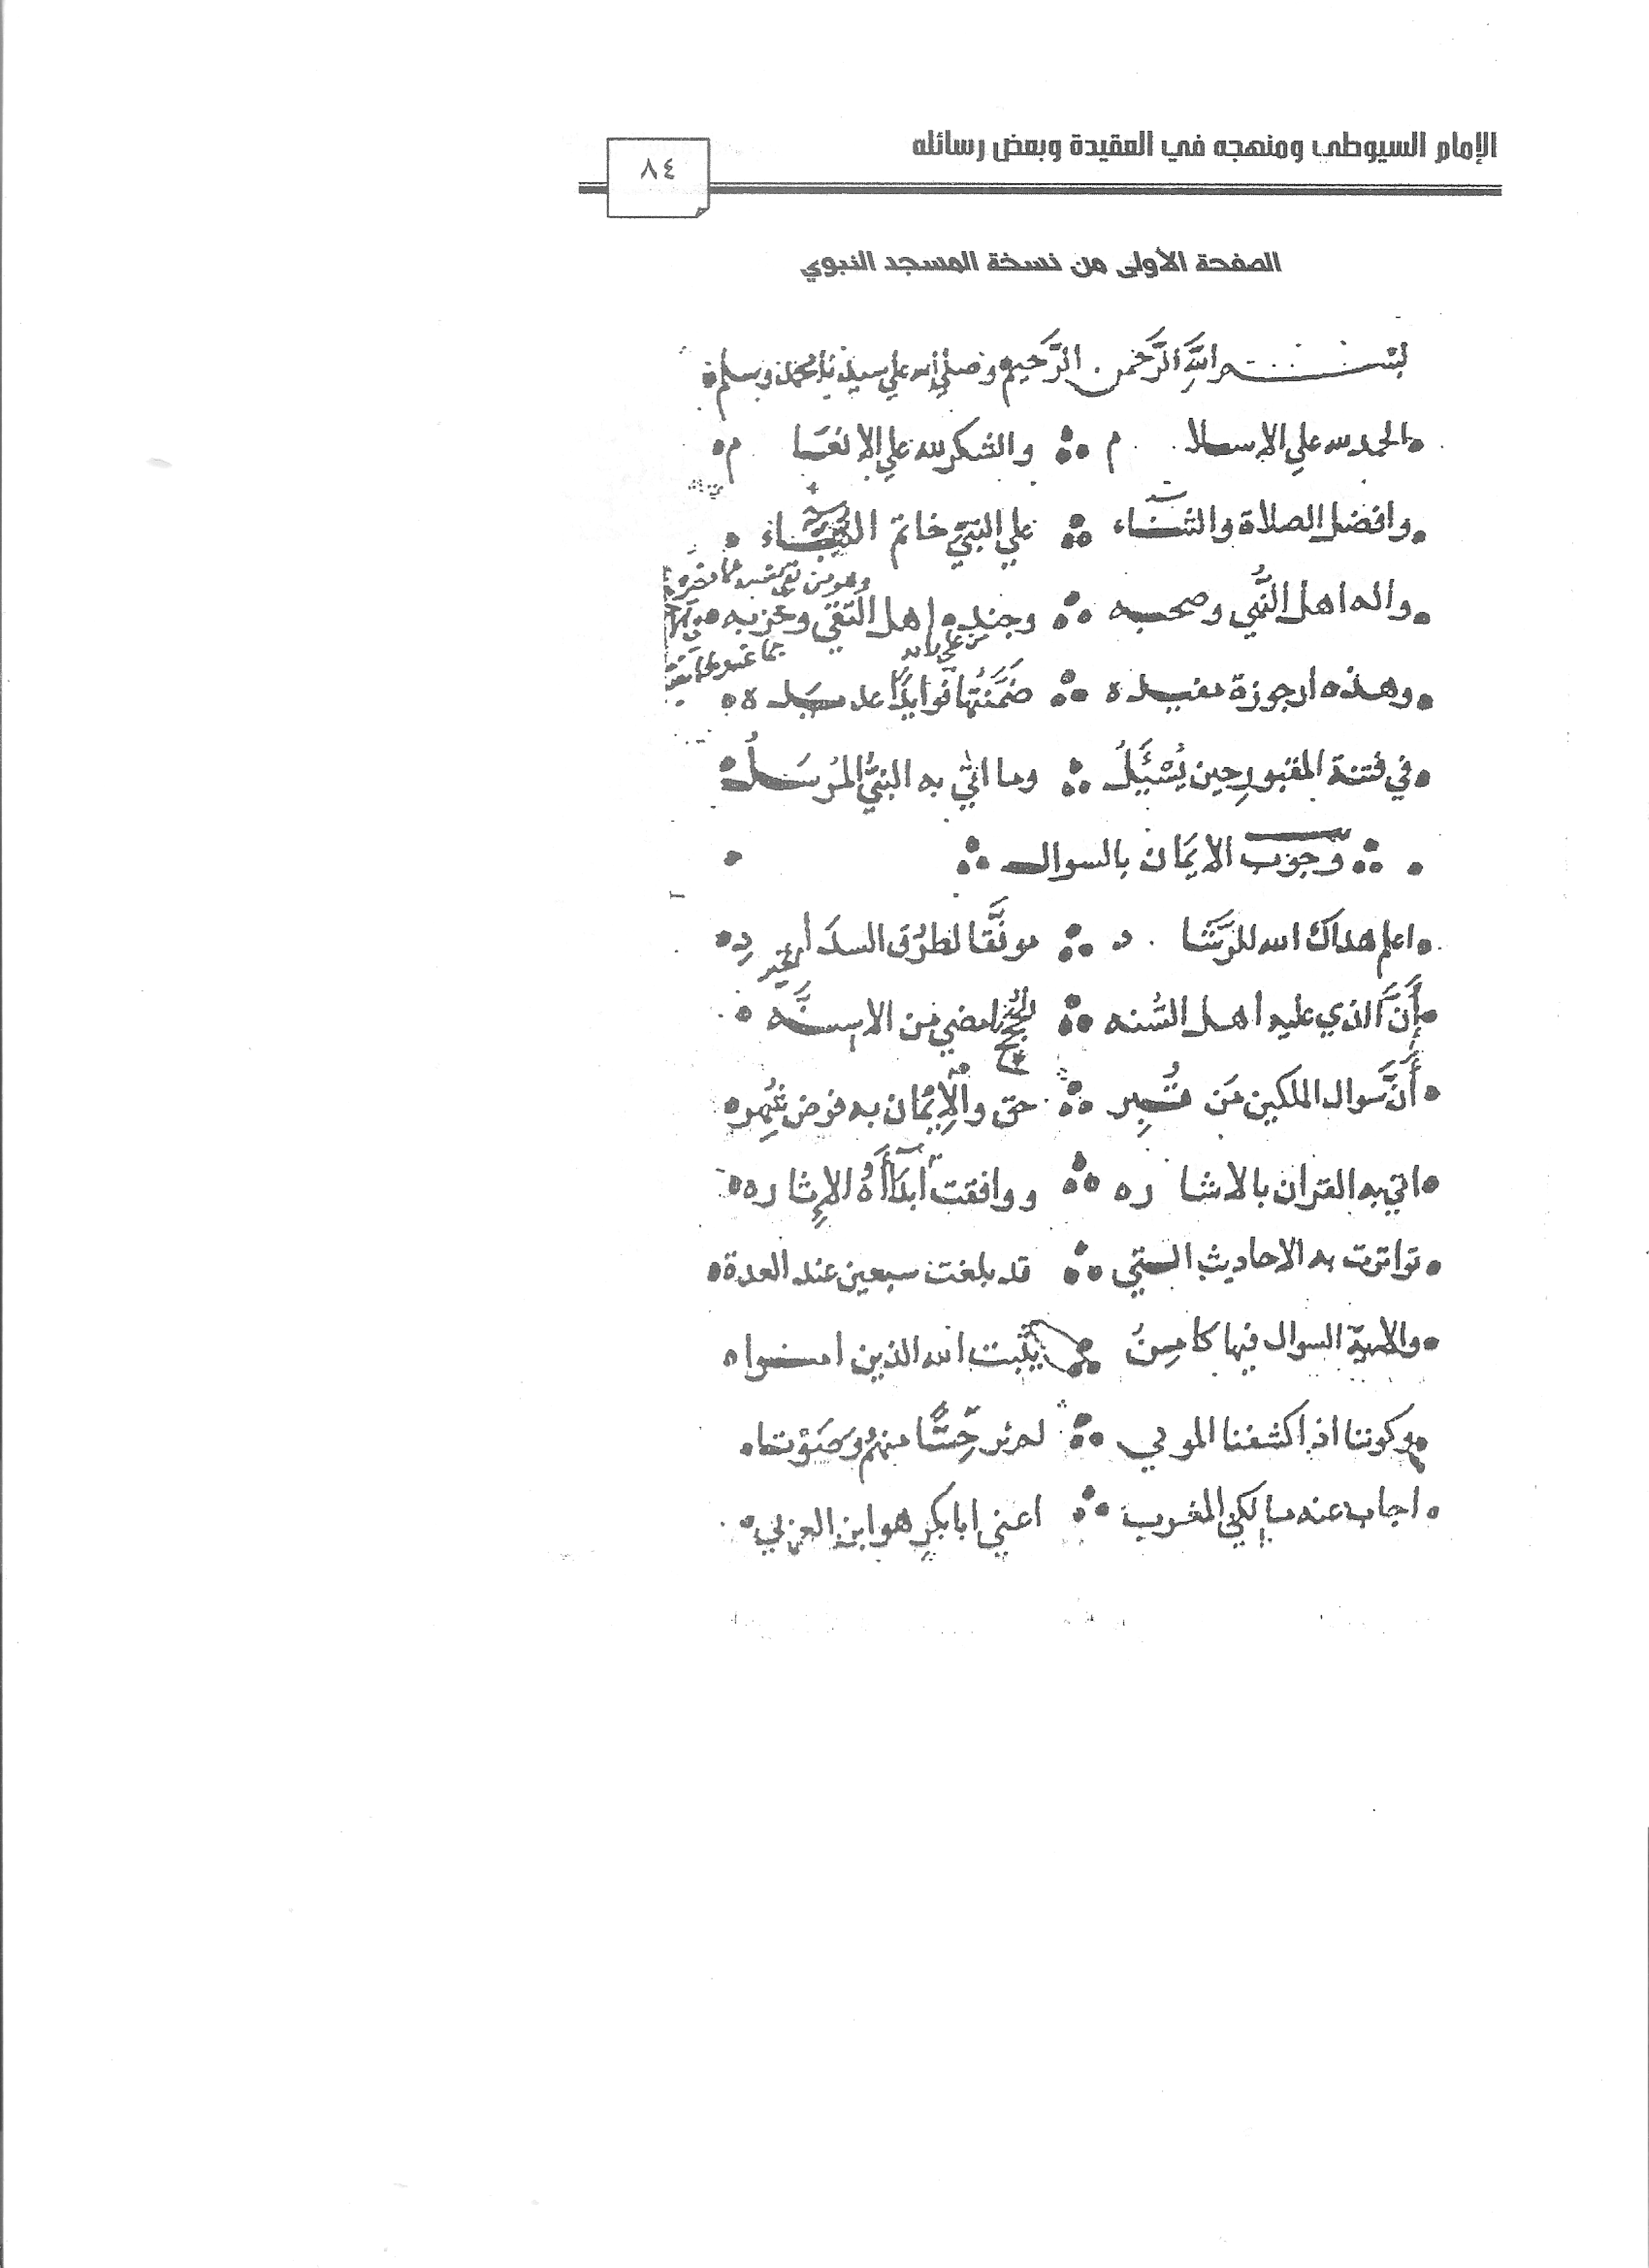 الإمام السيوطي ومنهجه في العقيدة وبعض رسائله
٨٤
الصفحة الأولى من نسخة المسجد النبوي
بسم اللَّهِ الرَّحمن الرَّحيم وصلي الله علي سيدنا محمد وسلم
الحمد لله علي الاسلام والشكر لله علي الانعَام
وافضل الصلاة والثنَاء علي النبيّ خاتم
واله اهل النَّبي وصحبه وجنده اهل التقي وحزبه
وهذه ارجوزة مفيده ضَمَّنتُها فوايدًا عديدَة
في فتنة المقبورِ حين يُسْئَلُ وما اتي به النبيُّ المُرسَلُ
وجوب الايمَان بالسوال
اعلم هداك الله للرَّشَاد موفَّقا لطرُق السدَادِ
أنَّ الذي عليه اهل السُّنه امضي من الاسنَّه
أنَّ سَوال الملكين مَن قُبِر حق والْإِيْمَان به فرض شُهِر
اتي به القران بالاشاره ووافقت الإشاره
تواترت به الاحاديث التي قد بلغت سبعين عند العدة
والاية السوال فيها كامِنُ يثَبت الله الذين امنوا
وكوننا اذا كشفنا الموتي لم نر حِسًّا منهمُ وصَوْتا
اجاب عنه مالكي المغرب اعني ابا بكرٍ هو ابن العربي